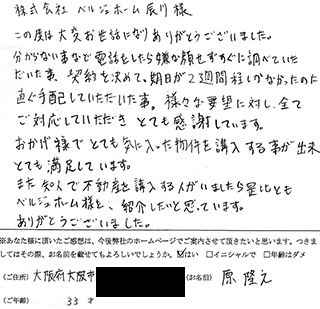 株式会社 ベルジホーム辰川様
この度は大変お世話になりありがとうございました。
分からない事など電話をしたら嫌な顔せずすぐに調べていた
だいた事、契約を決めて、期日が2週間程しかなかったのに
直ぐ手配していただいた事。様々な要望に対し、全て
ご対応していただき とても感謝しています。
おかげ様で とても気に入った物件を購入する事が出来
とても満足しています。
また知人で不動産を購入する人がいましたら是非とも
ベルジホーム様を、紹介したいと思っています。
ありがとうございました。
※あなた様に頂いたご感想は、今後弊社のホームページでご案内させて頂きたいと思います。つきま
してはその際、お名前を載せてもよろしいでしょうか。☑はい □イニシャルで □年齢はダメ
(ご住所) 大阪府大阪市 (お名前) 原 隆之
(ご年齢) 33 才